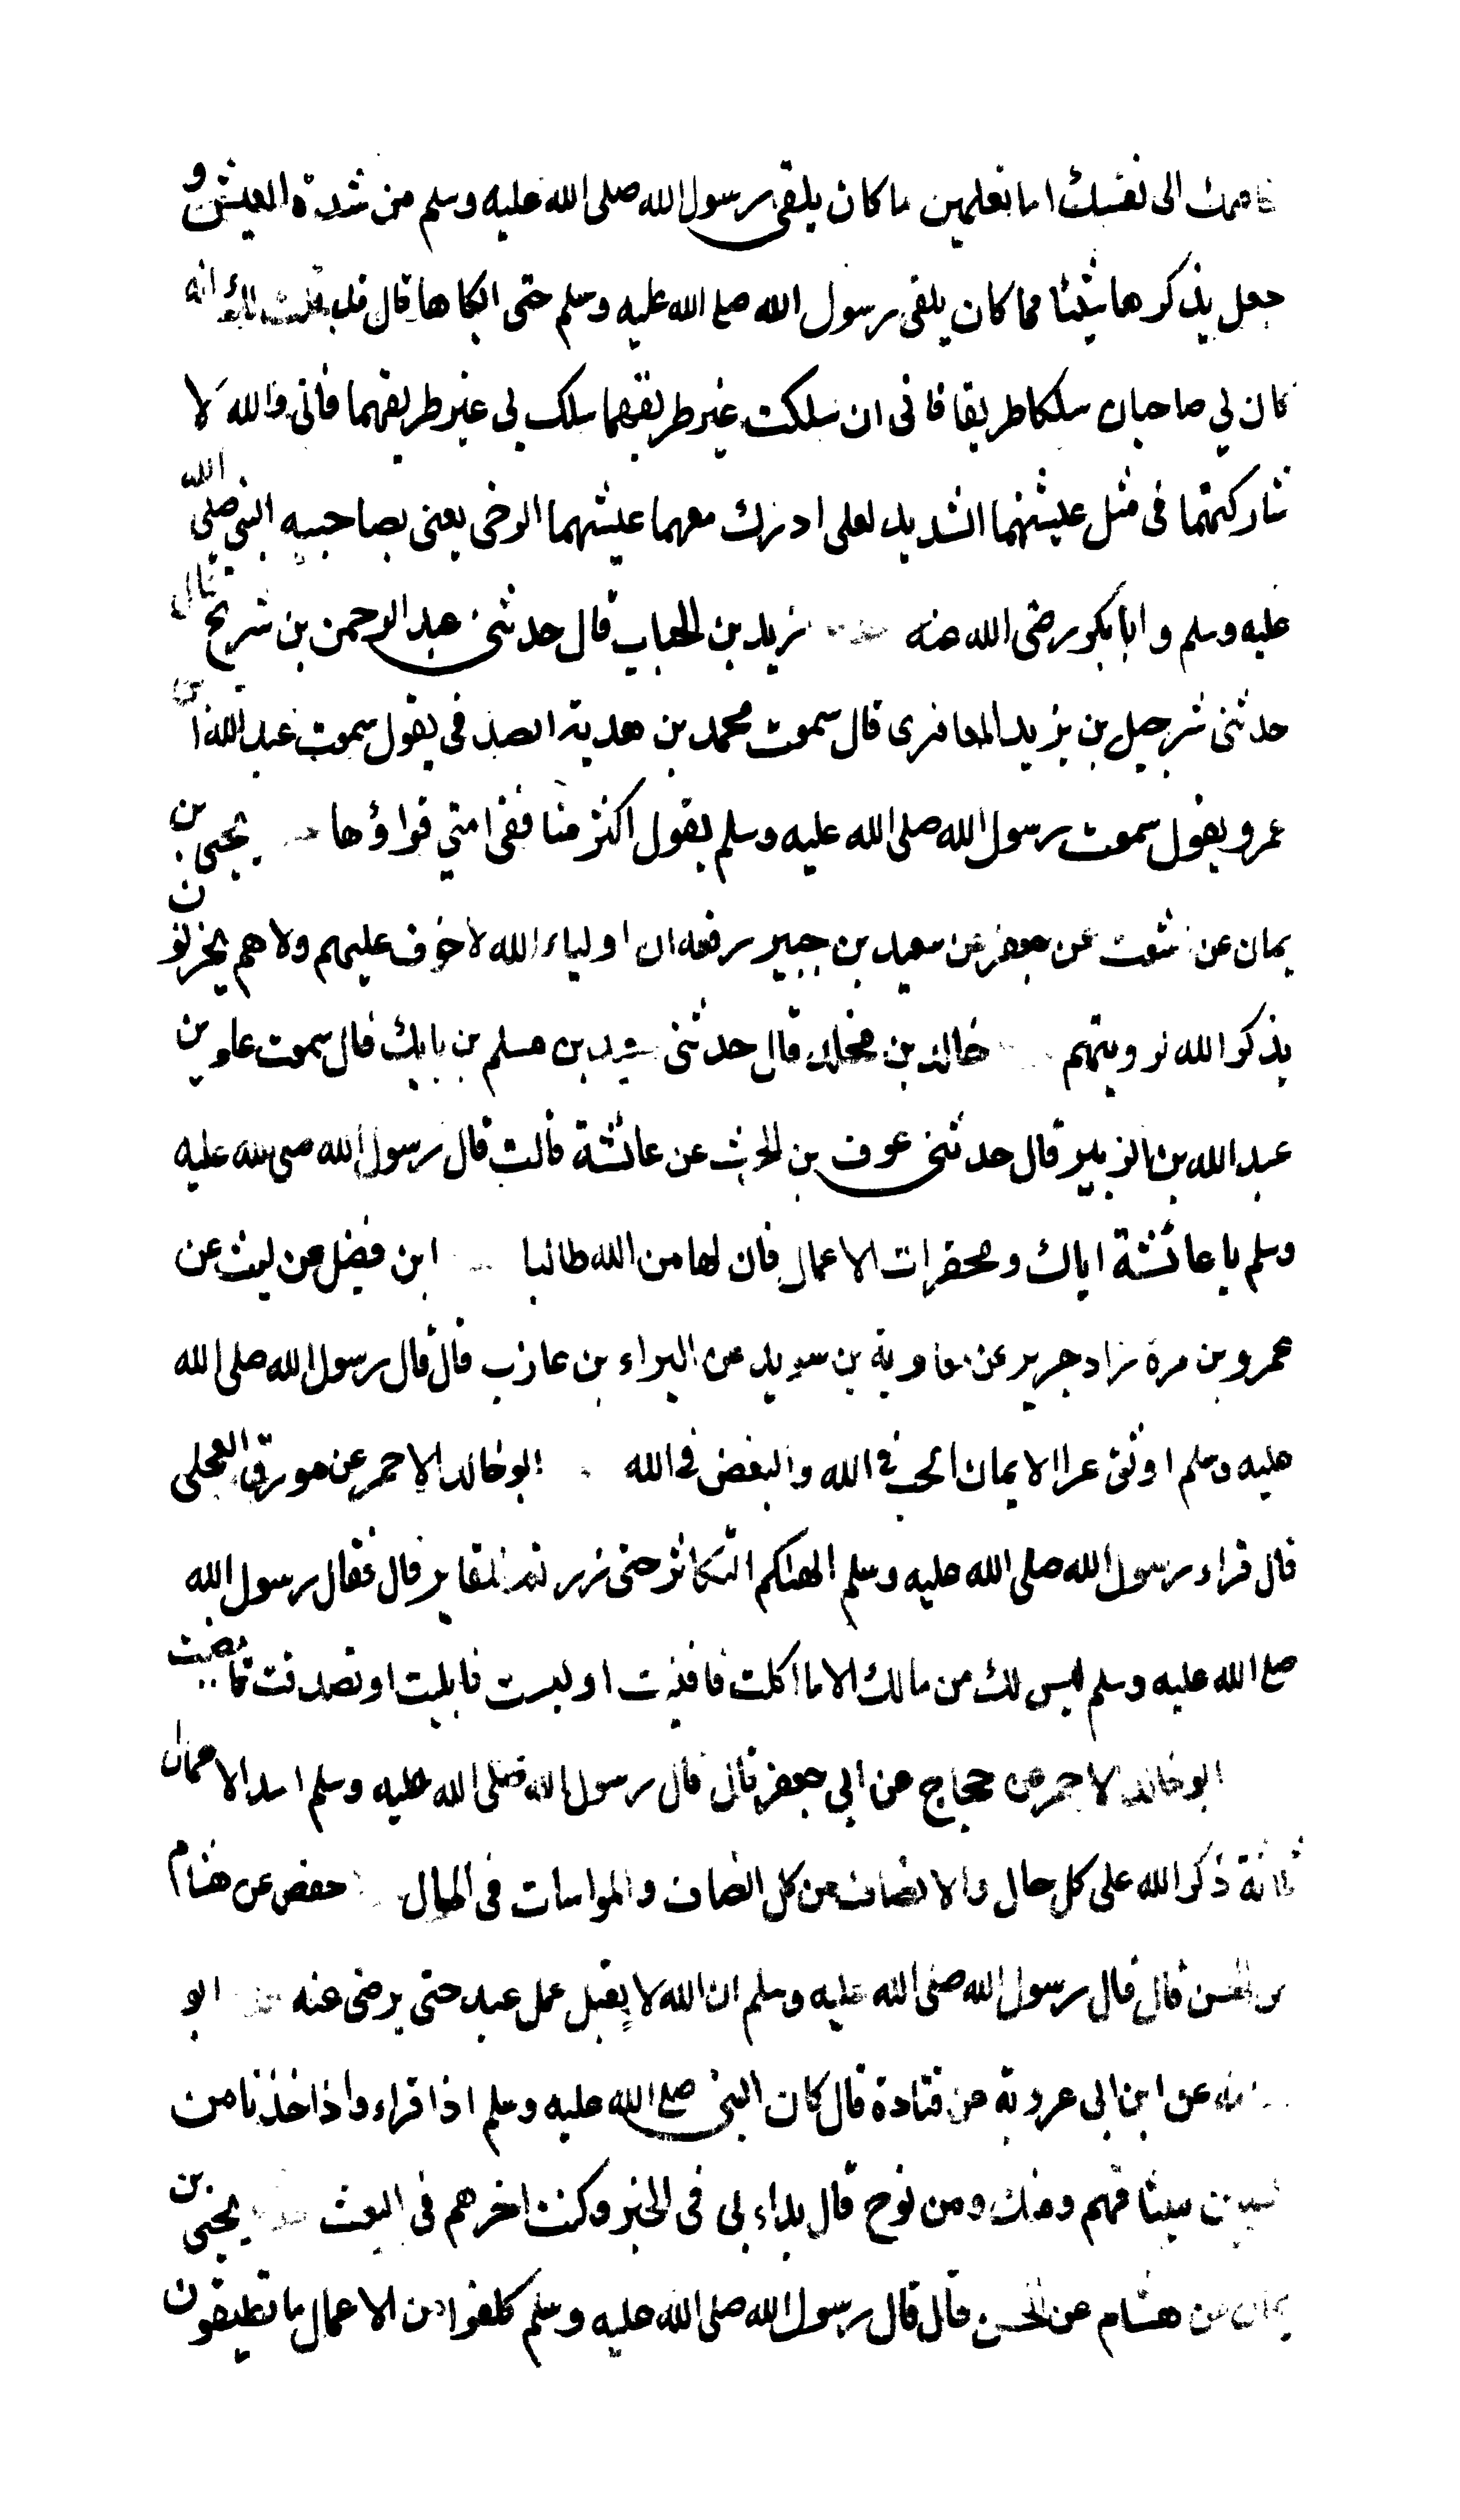 الى نفسك اما تعلمين ما كان يلقى رسول الله صلى الله عليه وسلم من شدة العيش و
جعل يذكرها شيئا مما كان يلقى رسول الله صلع الله عليه وسلم حتى ابكاها قال قد قلت لك انه
كان لي صاحبان سلكا طريقا فانى ان سلكت غير طريقهما سلك بى غير طريقهما فانى والله لا
شاركتهما فى مثل عيشهما الشديد لعلى ادرك معهما عيشهما الرخى يعنى بصاحبيه النبى صلى الله
عليه وسلم و ابا بكر رضى الله عنه زيد بن الحباب قال حدثنى عبد الرحمن بن شريح قال
حدثنى شرحبيل بن يزيد المعافرى قال سمعت محمد بن هدية الصدفى يقول سمعت عبد الله بن
عمرو يقول سمعت رسول الله صلى الله عليه وسلم يقول اكثر منافقى امتى قراؤها يحيى بن
يمان عن اشعث عن جعفر عن سعيد بن جبير رفعه ان اولياء الله لا خوف عليهم ولا هم يحزنون
يذكر الله لرويتهم خالد بن مخلد قال حدثنى سعيد بن مسلم بن بابك قال سمعت عامر بن
عبد الله بن الزبير قال حدثنى عوف بن الحرث عن عائشة قالت قال رسول الله صلى الله عليه
وسلم يا عائشة اياك ومحقرات الاعمال فان لها من الله طالبا ابن فضيل عن ليث عن
عمرو بن مرة زاد جرير عن معاوية بن سويد عن البراء بن عازب قال قال رسول الله صلى الله
عليه وسلم اوثق عرا الايمان الحب فى الله والبغض فى الله ابو خالد الاحمر عن مورق العجلى
قال قراء رسول الله صلى الله عليه وسلم الهاكم التكاثر حتى زرتم المقابر قال فقال رسول الله
صلع الله عليه وسلم ليس لك من مالك الا ما اكلت فافنيت او لبست فابليت او تصدقت فامضيت
ابو خالد الاحمر عن حجاج عن ابى جعفر قال قال رسول الله صلى الله عليه وسلم اسد الاعمال
ثلثة ذكر الله على كل حال والانصاف من كل انصاف والمواسات فى المال حفص عن هشام
عن الحسن قال قال رسول الله صلى الله عليه وسلم ان الله لا يقبل عمل عبد حتى يرضى عنه ابو
عن ابن ابى عروبة عن قتادة قال كان النبى صلع الله عليه وسلم اذا قراء واذ اخذنا من
النبيين ميثاقهم ومنك ومن نوح قال بداء بى فى الخير وكنت اخرهم فى البعث يحيى بن
يمان عن هشام عن الحسن قال قال رسول الله صلى الله عليه وسلم كلفوا من الاعمال ما تطيقون